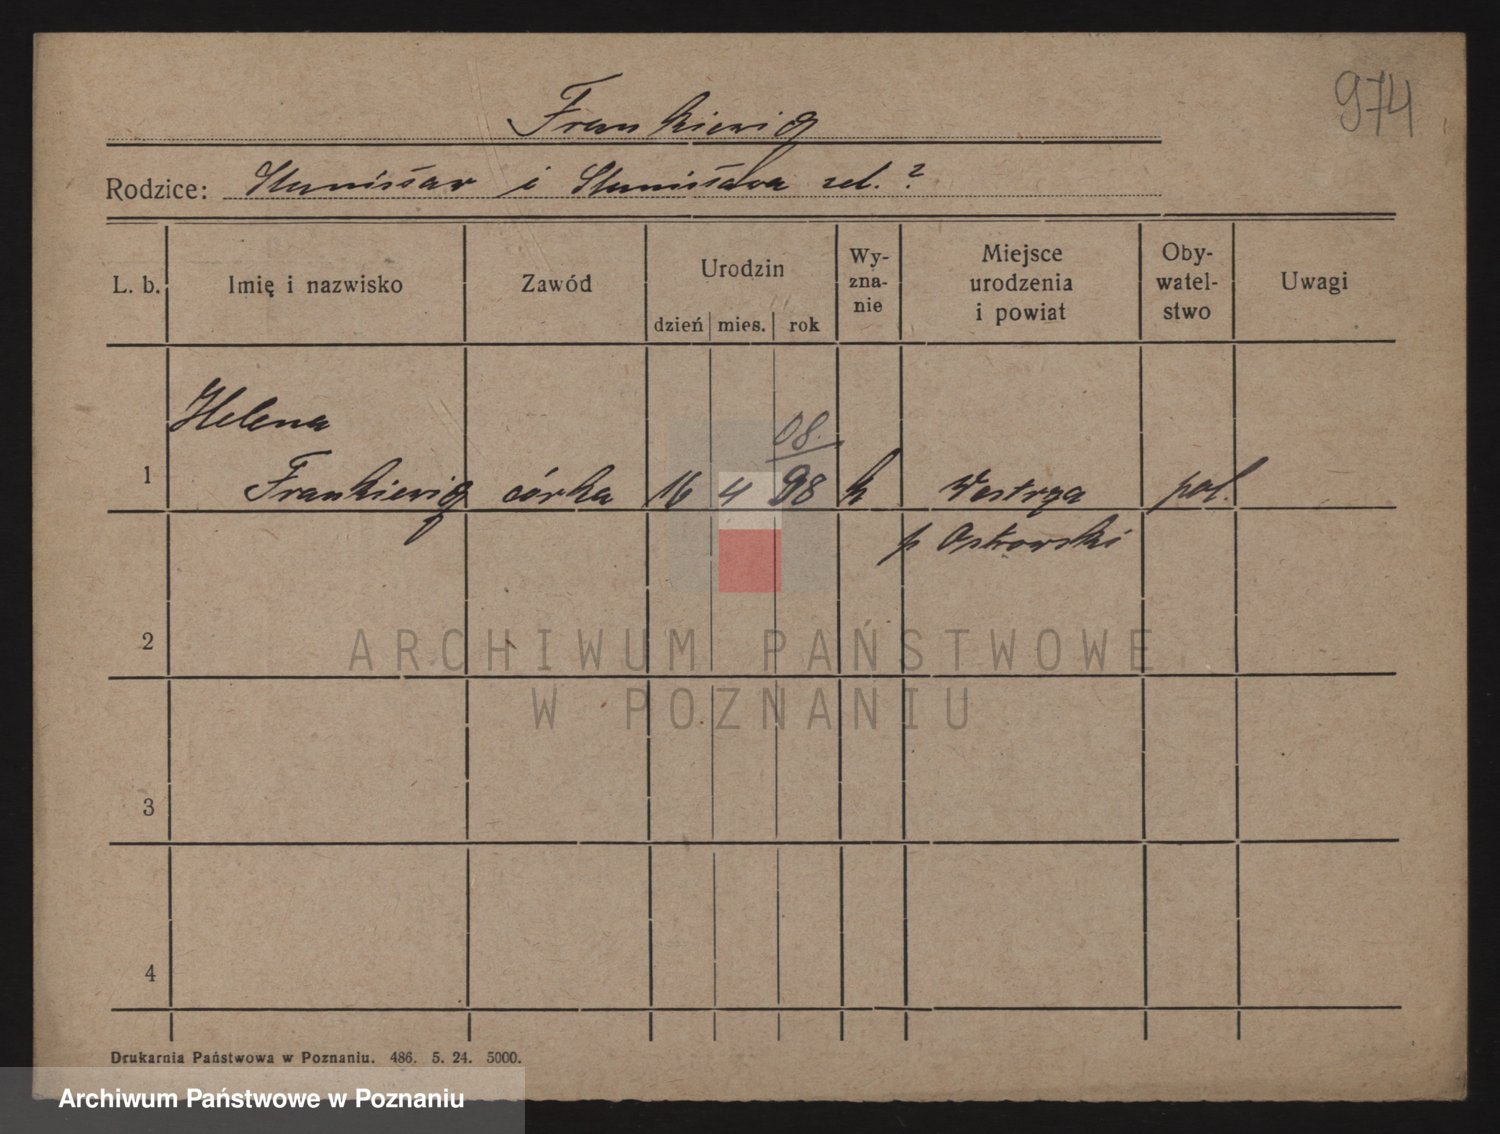 974
Frankiewicz
Rodzice: Stanisław i Stanisława zd. ?
L. b. Imię i nazwisko Zawód Urodzin dzień mies. rok Wy- zna- nie Miejsce urodzenia i powiat Oby- watel- stwo Uwagi
Helena
08.
1 Frankiewicz córka 16 4 98 k pol.
p Ostrowski
2
ARCHIWUM PAŃSTWOWE
W POZNANIU
3
4
Drukarnia Państwowa w Poznaniu. 486. 5. 24. 5000.
Archiwum Państwowe w Poznaniu